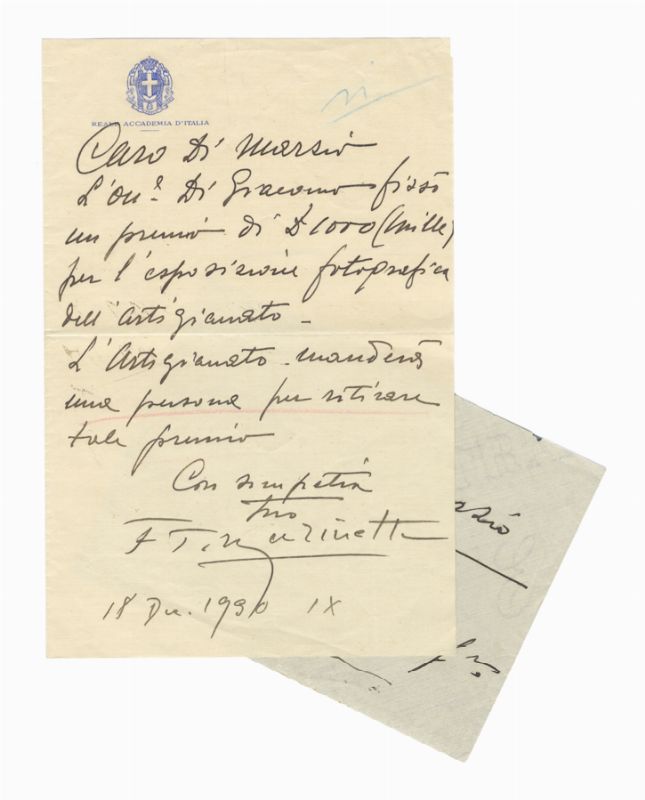 si
REALE ACCADEMIA D'ITALIA
Caro Di Marzio
L'On.e Di Giacomo fissò
un premio di £ 1000 (mille)
per l'esposizione fotografica
dell'Artigianato -
L'Artigianato manderà
una persona per ritirare
tale premio
Con simpatia
tuo
F T Marinetti
18 Dic. 1930 IX